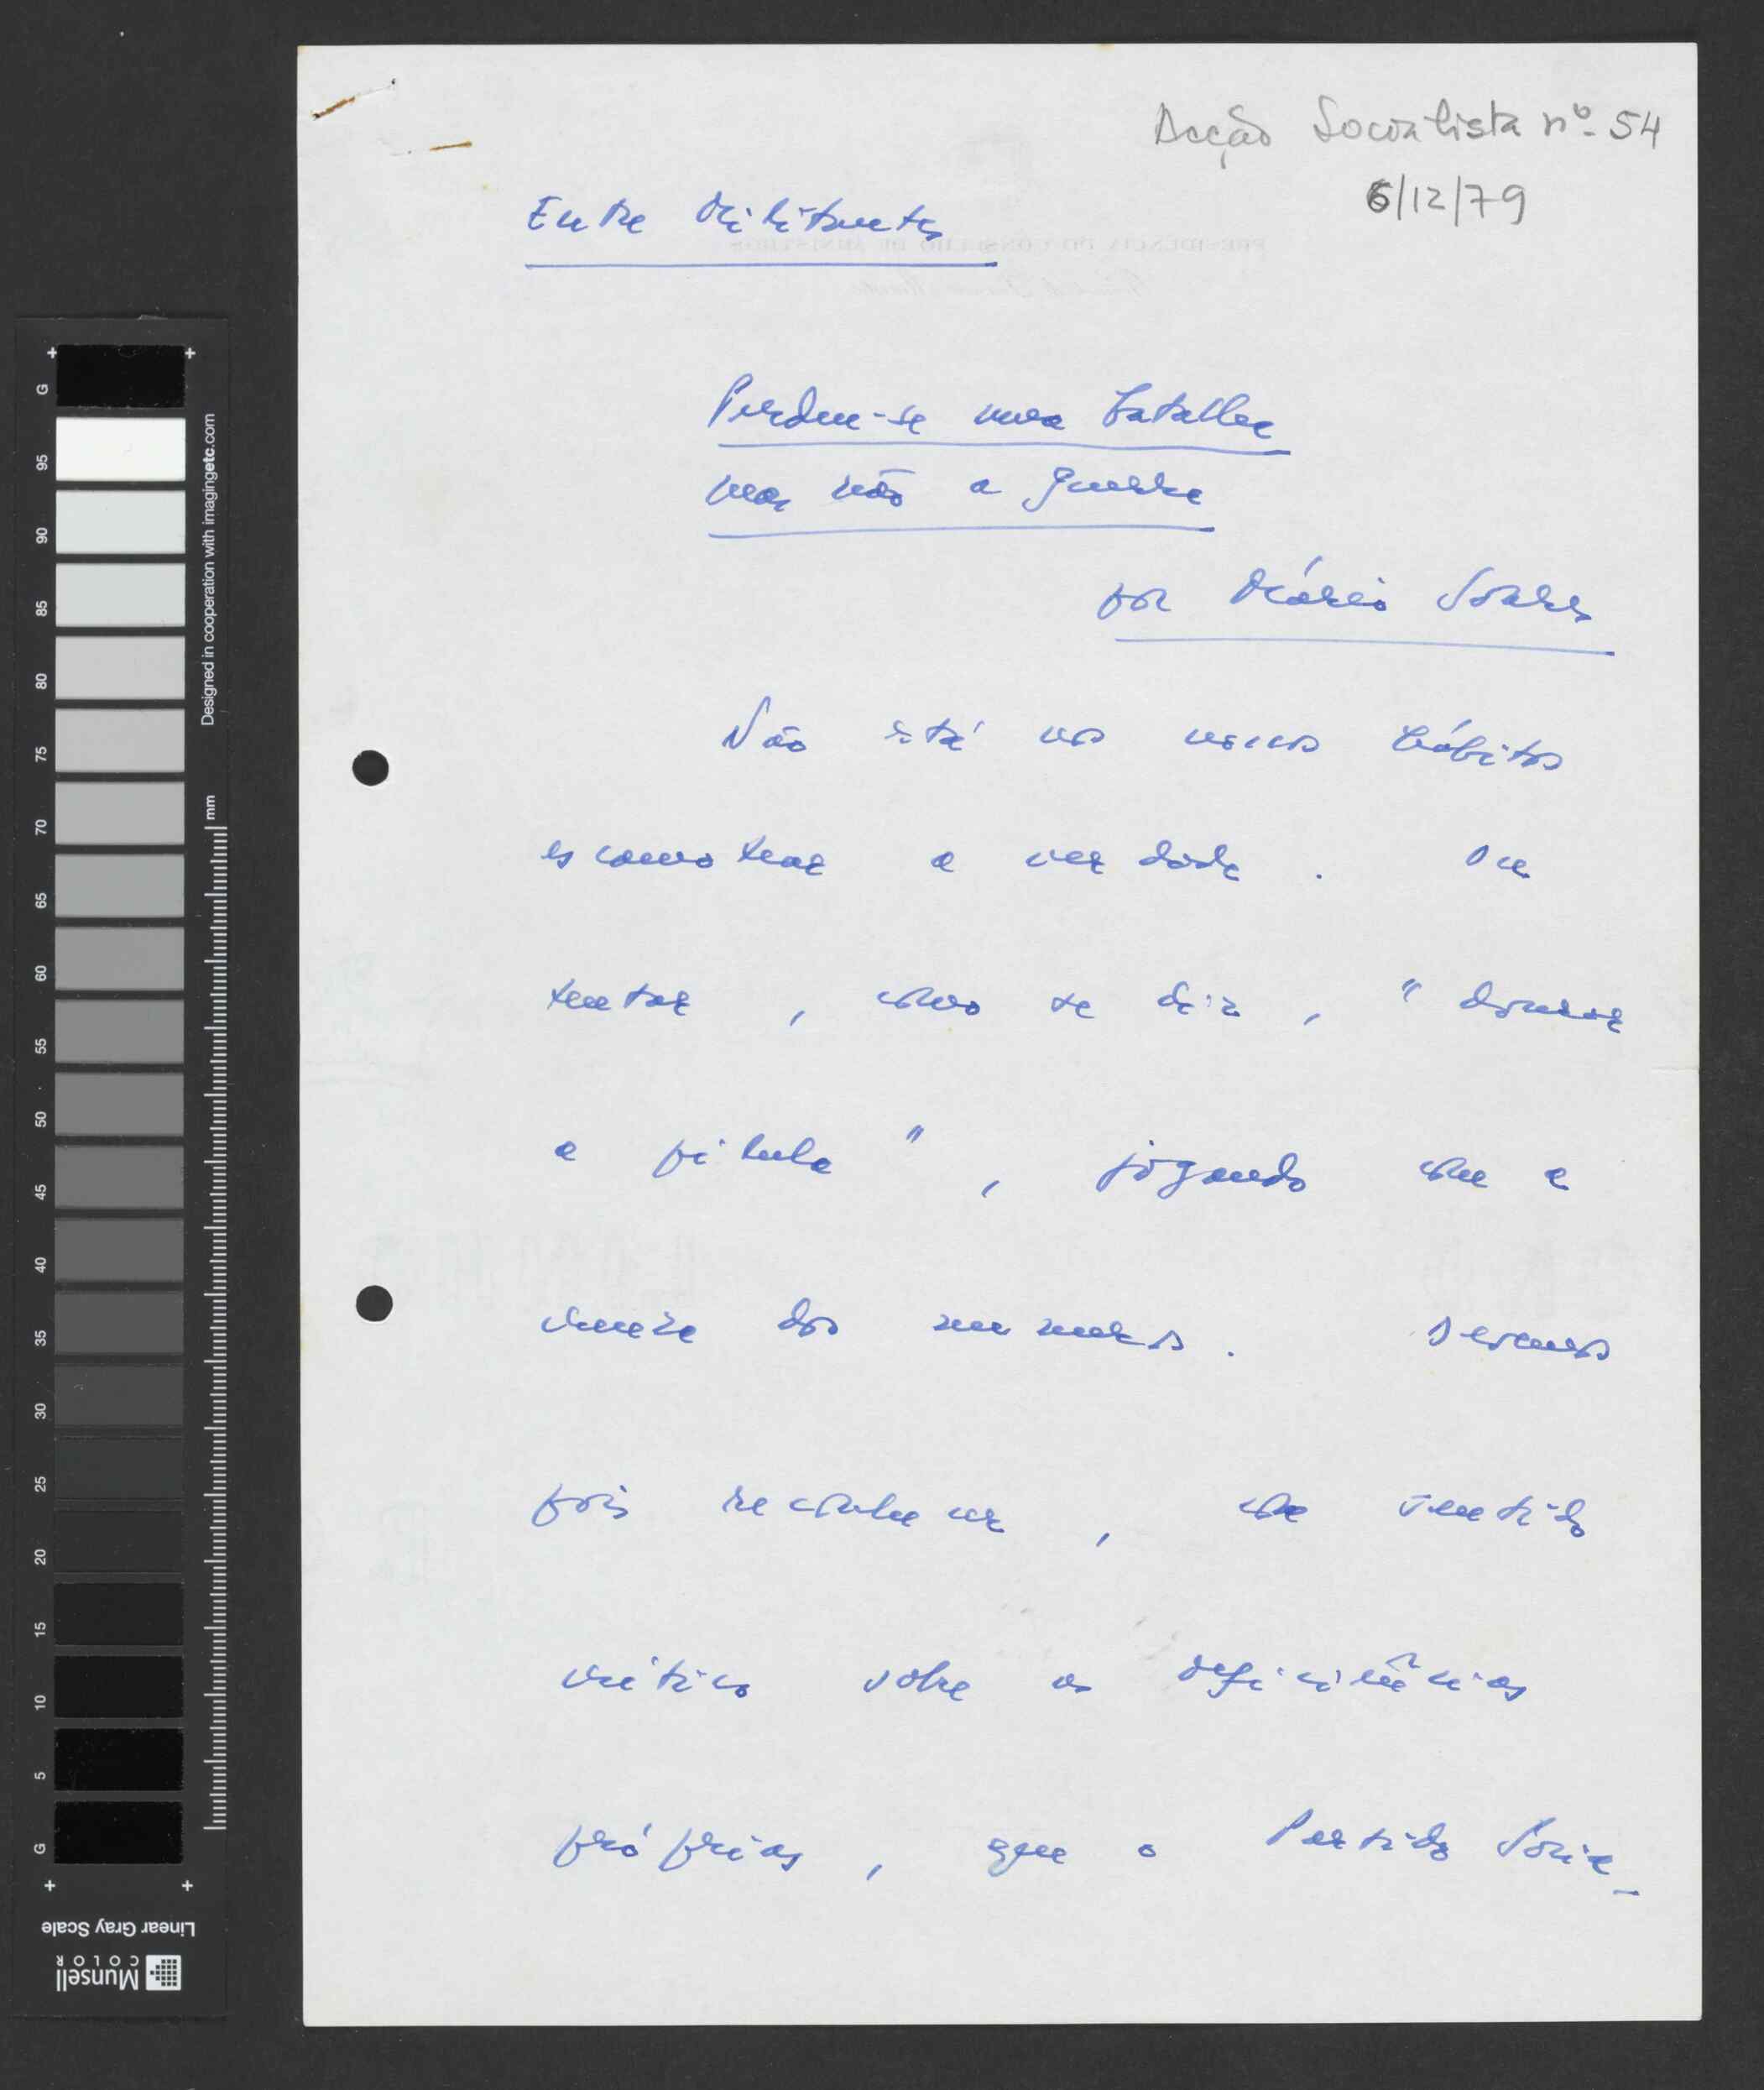 Acção Socialista nº 54
6/12/79
Entre Militantes
PRESIDÊNCIA DO CONSELHO DE MINISTROS
Perdeu-se uma batalha
mas não a guerra
por Mário Soares
Não está nos nossos hábitos
escamotear a verdade. Ou
tentar, como se diz, "dourar
a pílula", jogando com a
dos números. Devemos
pois reconhecer, com sentido
crítico sobre as deficiências
próprias, que o Partido Socia-
G
95
90
85
80
75
70
65
60
55
50
45
40
35
30
25
20
15
10
5
G
Designed in cooperation with imagingetc.com
mm
Linear Gray Scale
Munsell
COLOR